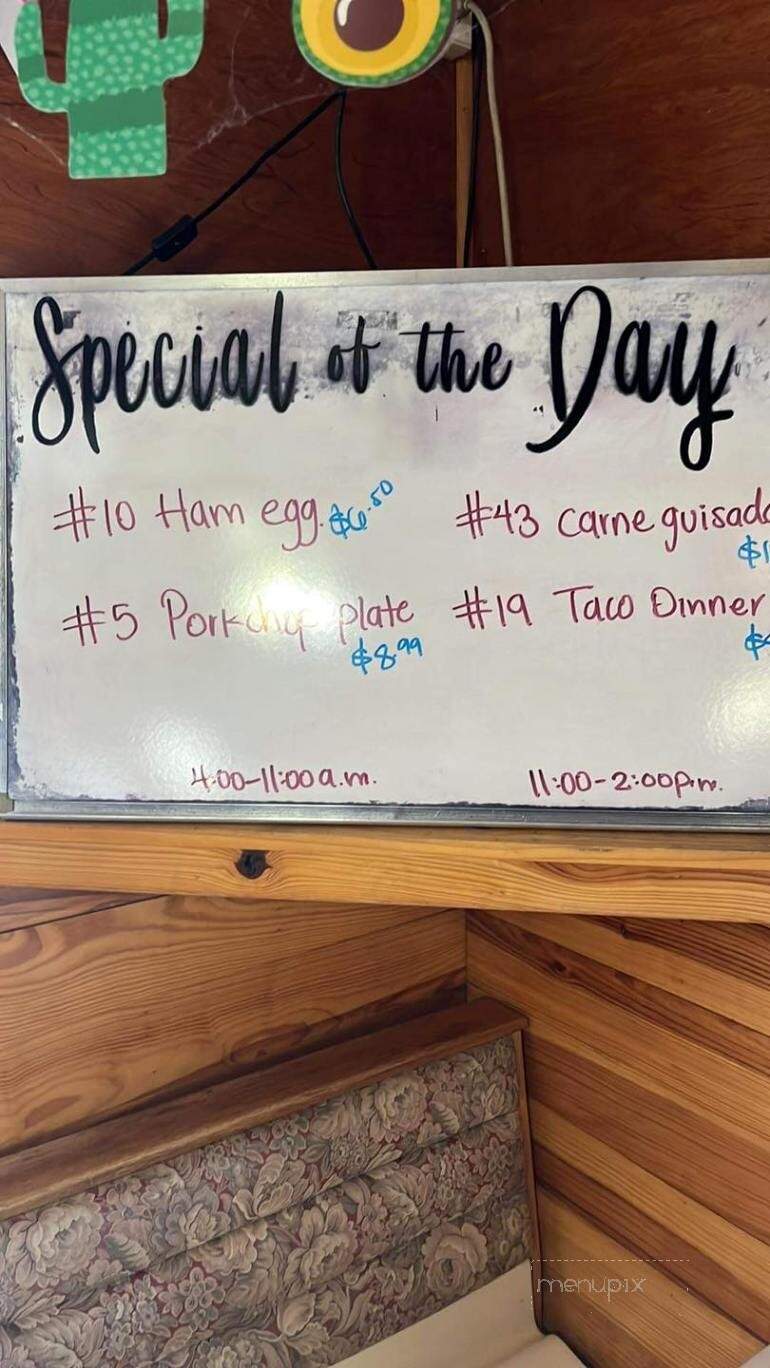 Special of the Day
#10 Ham egg. $6.50
#43 Carne guisada
$1
#5 Porkchop plate
$8.99
#19 Taco Dinner
$
4:00-11:00 a.m.
11:00-2:00 p.m.
menupix